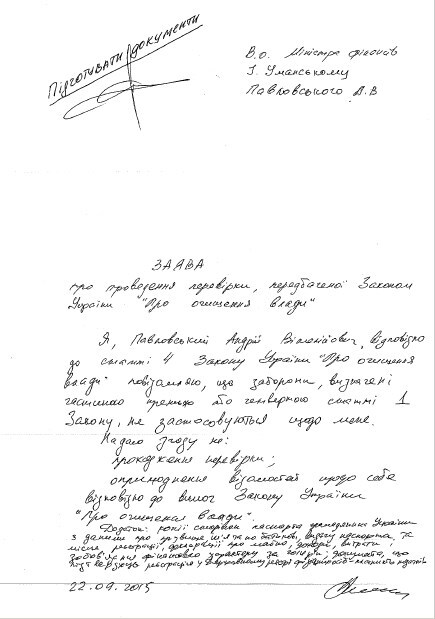 Підготувати документи
В.о. Міністра фінансів
І. Уманському
Павловського А.В
ЗАЯВА
про проведення перевірки, передбаченої Законом
України "Про очищення влади"
Я, Павловський Андрій, відповідно
до статті 4 Закону України "Про очищення
влади" повідомляю, що заборони, визначені
частиною третьою або четвертою статті 1
Закону, не застосовуються щодо мене.
Надаю згоду на:
проходження перевірки;
оприлюднення відомостей щодо себе
відповідно до вимог Закону України
"Про очищення влади".
Додаток: копії сторінок паспорта громадянина України
з даними про прізвище, ім'я та по батькові, видачу паспорта, та
місце реєстрації, декларації про майно, доходи, витрати і
зобов'язання фінансового характеру за документа, що
підтверджують реєстрацію у Державному реєстрі фізичних осіб - платників податків
22.09.2015